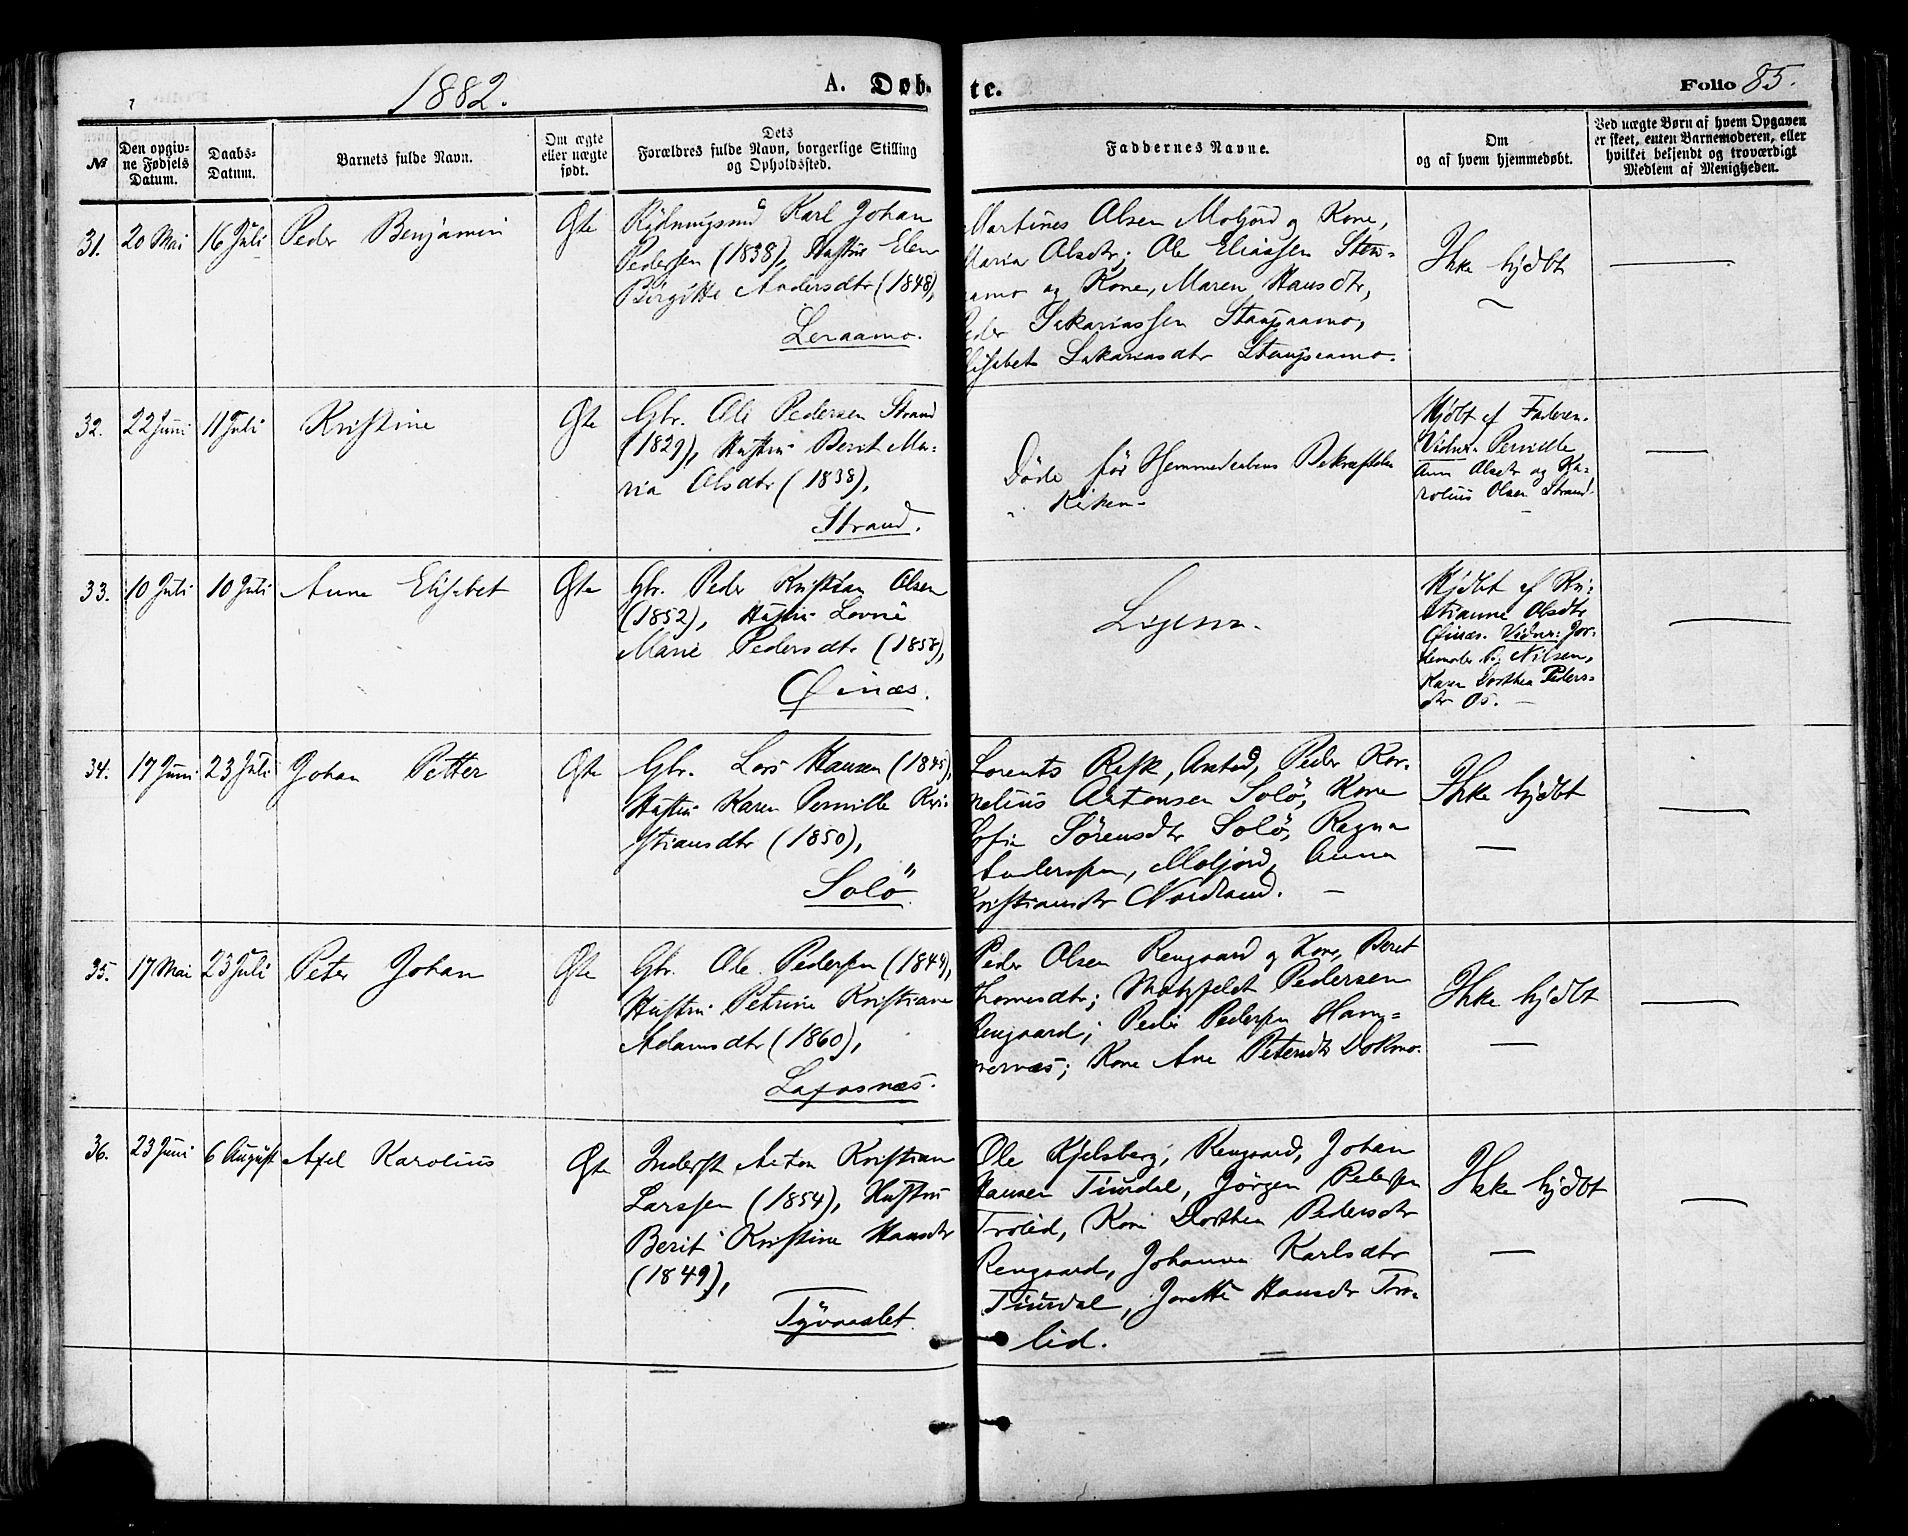 1882.
A. Døbte.
Folio 85.
№
Den opgivne Fødsels Datum.
Daabs-Datum.
Barnets fulde Navn.
Om ægte eller uægte født.
Dets Forældres fulde Navn, borgerlige Stilling og Opholdssted.
Faddernes Navne.
Om og af hvem hjemmedøbt.
Ved uægte Børn af hvem Opgaven er skeet, enten Barnemoderen, eller hvilket bekjendt og troværdigt Medlem af Menigheden.
31. 20 Mai 16 Juli Peder Benjamin Ægte
Karl Johan
Pedersen (1838), Hustru Elen
Birgitte Andersdtr (1848),
Leraamo.
Martines Olsen Moljord og Kone,
Maria Olsdtr; Ole Eliassen
og Kone, Maren Hansdtr,
Peder Sakariassen
Elisabet Sakariasdtr
Ikke hjdbt
32. 22 Juni 11 Juli Kristine Ægte
Gbr. Ole Pedersen Strand
(1829), Hustru Berit Ma-
ria Olsdtr (1838),
Strand.
Døde før Hjemmedaabens Bekræftelse
i Kirken
Hjdbt af Faderen.
Vidner. Pernille
Ann Olsdtr og Ka-
rolius Olsen Strand.
33. 10 Juli 10 Juli Anne Elisabet Ægte
Gbr. Peder Kristian Olsen
(1852), Hustru Lovise
Marie Pedersdtr (1858),
Øinæs.
Ligesaa.
Hjdbt af Kri-
stianne Olsdtr
Øinæs. Vidner: Jor-
demoder B. Nilsen,
Karen Dorthea Peders-
dtr Os.
34. 17 Juni 23 Juli Johan Petter Ægte
Gbr. Lars Hansen (1845),
Hustru Karen Pernille Kri-
stiansdtr (1850),
Solö.
Lorents Rask, Arstad, Peder Kor-
nelius Antonsen Solö, Kone
Sofie Sörensdtr Solö, Ragna
Andersen, Moljord, Anna
Kristiansdtr Nordland.
Ikke hjdbt
35. 17 Mai 23 Juli Peter Johan Ægte
Gbr. Ole Pedersen (1849),
Hustru Petrine Kristiane
Adamsdtr (1860),
Laxosnæs.
Peder Olsen Rengaard og Kone, Beret
Thomesdtr; Hatzfeldt Pedersen
Rengaard; Peder Pedersen Ham-
mernæs; Kone Ane Petersdtr Dokmo.
Ikke hjdbt
36. 23 Juni 6 August Axel Karolius Ægte
Inderst Anton Kristian
Larssen (1854), Hustru
Berit Kristine Hansdtr
(1849),
Tyvaaslet.
Ole Kjelsberg, Rengaard, Johan
Hansen Tindal, Jörgen Pedersen
Trolid, Kone Dorthea Pedersdtr
Rengaard, Johanna Karlsdtr
Tindal, Jonette Hansdtr Tro-
lid.
Ikke hjdbt